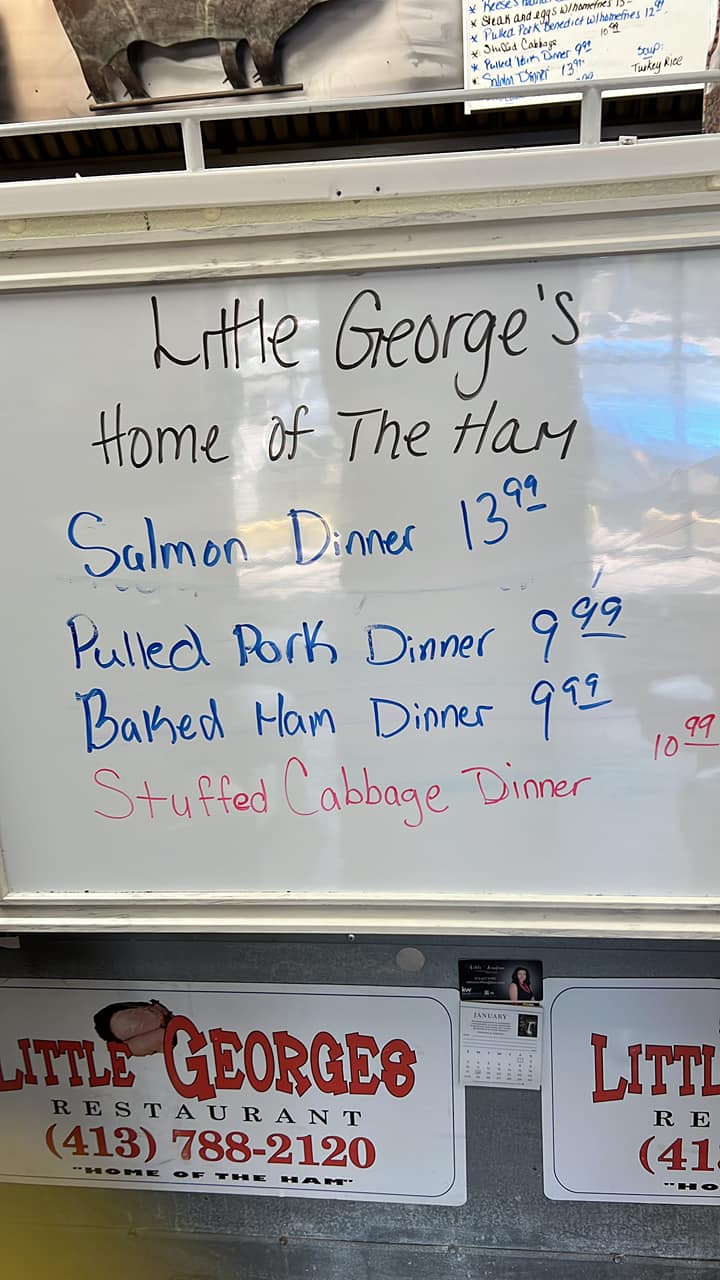 * Steak and eggs w/homefries
* Pulled Pork Benedict w/homefries 12.99
* Stuffed Cabbage 10.99
* Pulled Pork Dinner 9.99
* Salmon Dinner 13.99
Soup:
Turkey Rice
Little George's
Home of The Ham
Salmon Dinner 13.99
Pulled Pork Dinner 9.99
Baked Ham Dinner 9.99
Stuffed Cabbage Dinner 10.99
LITTLE GEORGES
RESTAURANT
(413) 788-2120
"HOME OF THE HAM"
kw
JANUARY
LITTL
RE
(41
"HO